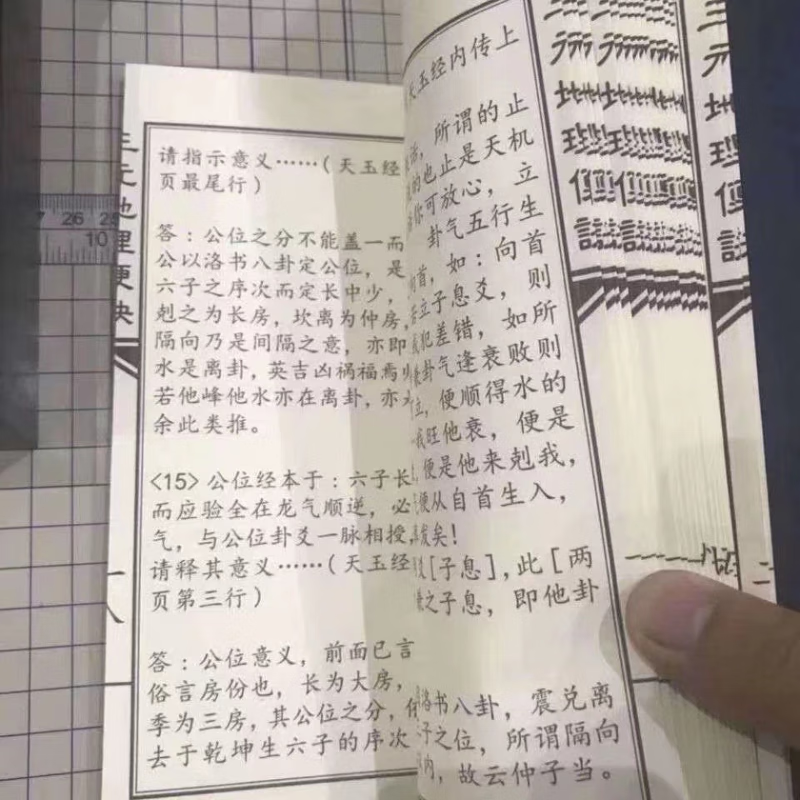 三元地理便诀
请指示意义……(天玉经
页最尾行)
答:公位之分不能盖一而
公以洛书八卦定公位,是
六子之序次而定长中少,
剋之为长房,坎离为仲房,
隔向乃是间隔之意,亦即
水是离卦,英吉凶祸福焉
若他峰他水亦在离卦,亦
余此类推。
<15>公位经本于:六子长
而应验全在龙气顺逆,必
气,与公位卦爻一脉相授
请释其意义……(天玉经
页第三行)
答:公位意义,前面已言
俗言房份也,长为大房,
季为三房,其公位之分,
去于乾坤生六子的序次
一八
天玉经内传上
所谓的止
的也止是天机
你可放心,立
卦气五行生
首,如:向首
立子息爻,则
犯差错,如所
卦气逢衰败则
便顺得水的
我旺他衰,便是
便是他来剋我,
便从自首生入,
发矣!
[子息],此[两
之子息,即他卦
洛书八卦,震兑离
子之位,所谓隔向
内,故云仲子当。
三元地理便诀
二